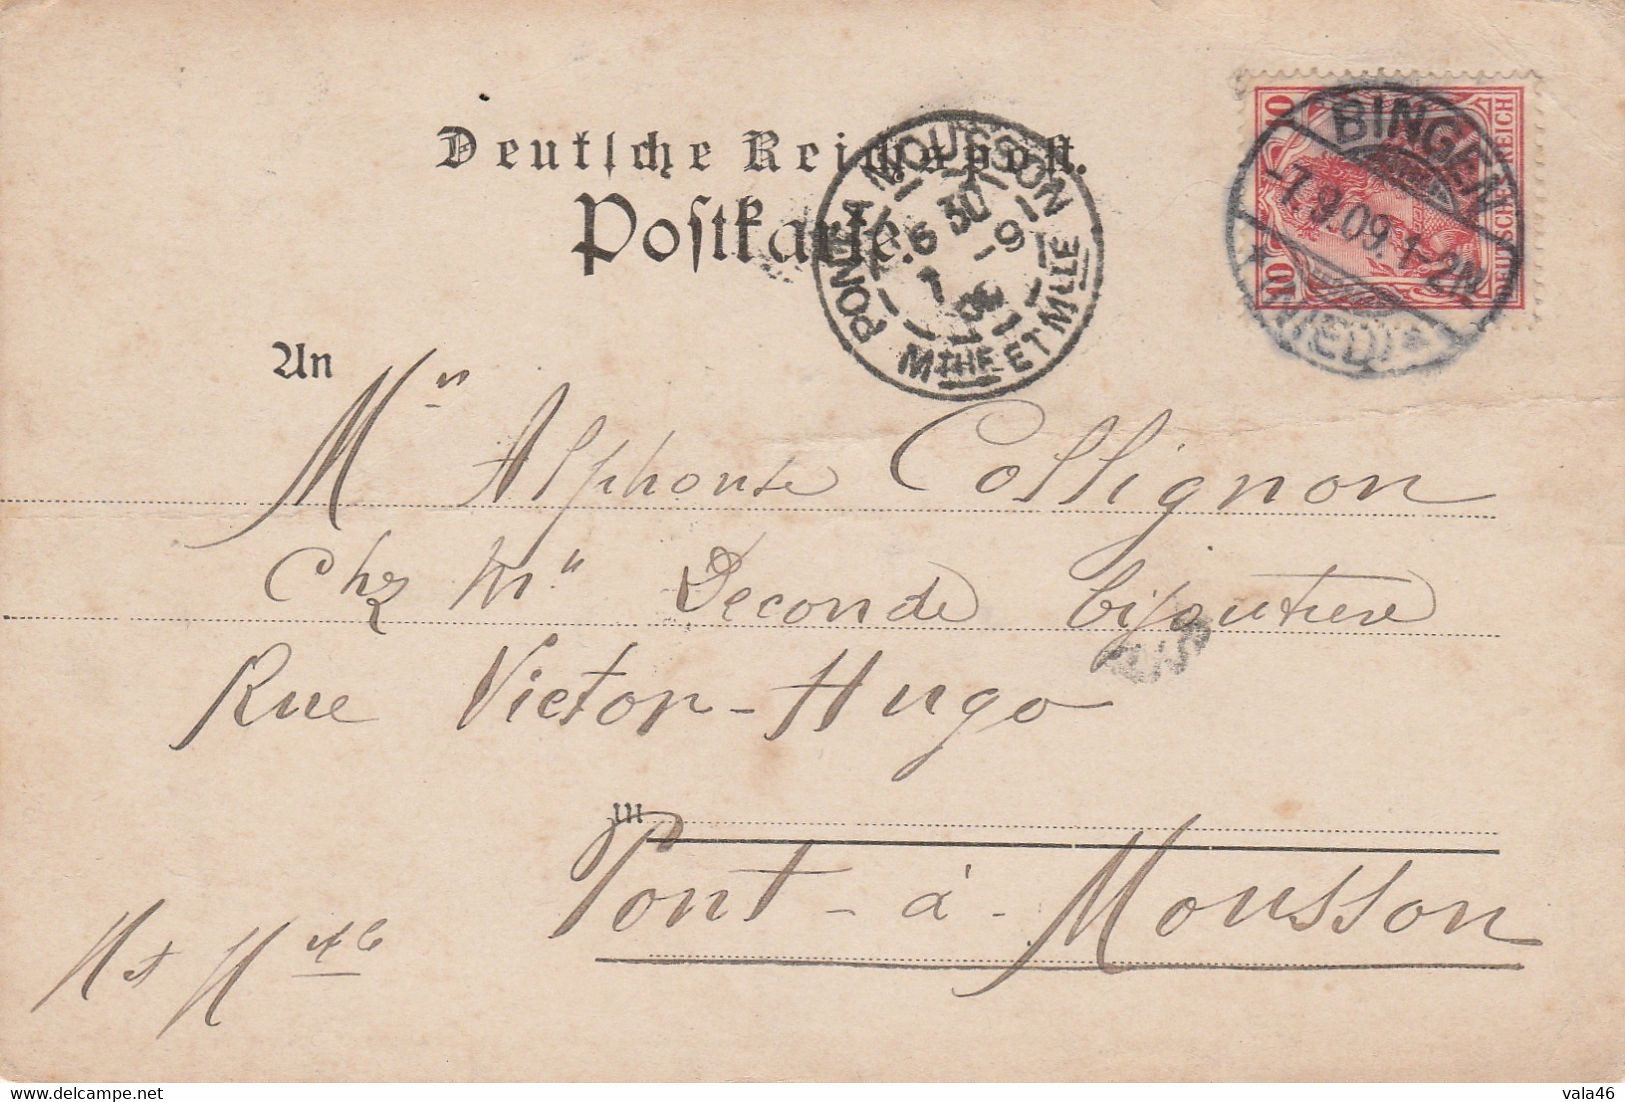 Deutsche Reichspost.
Postkarte.
10 DEUTSCHES REICH 10
BINGEN
-7.9.09.1-2N
PONT-A-MOUSSON
6 30
-9
09
MTHE ET MLLE
An
Mr Alphonse Collignon
Chez Mr Deconde bijoutiere
Rue Victor-Hugo
in
Pont-à-Mousson
vala46